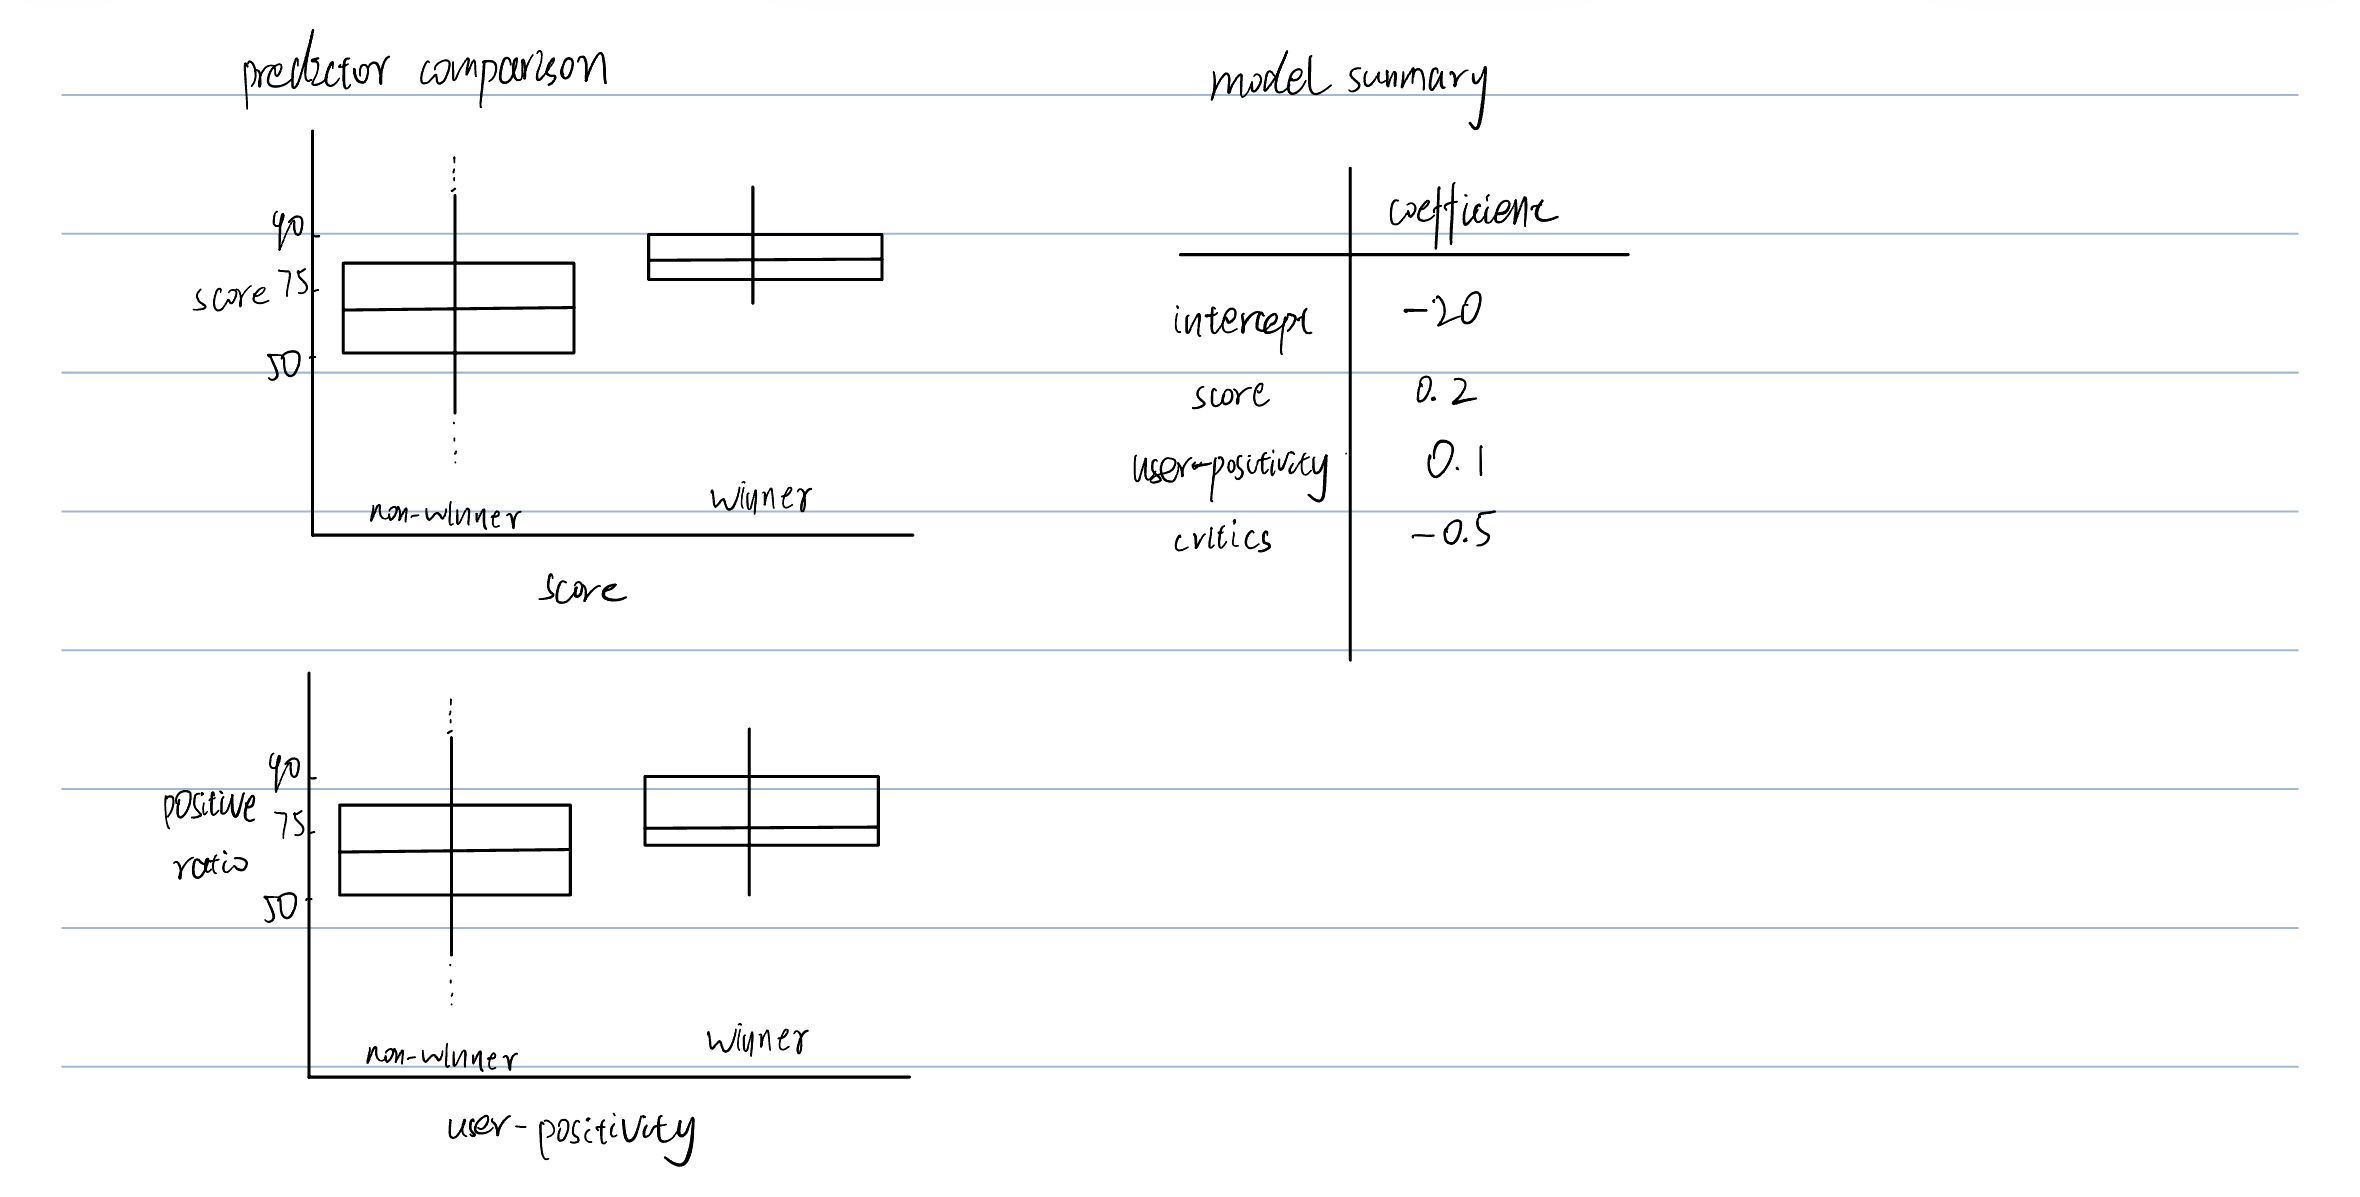 predictor comparison
90
score 75
50
non-winner winner
score
positive
ratio
90
75
50
non-winner winner
user-positivity
model summary
coefficient
intercept -20
score 0.2
user-positivity 0.1
critics -0.5